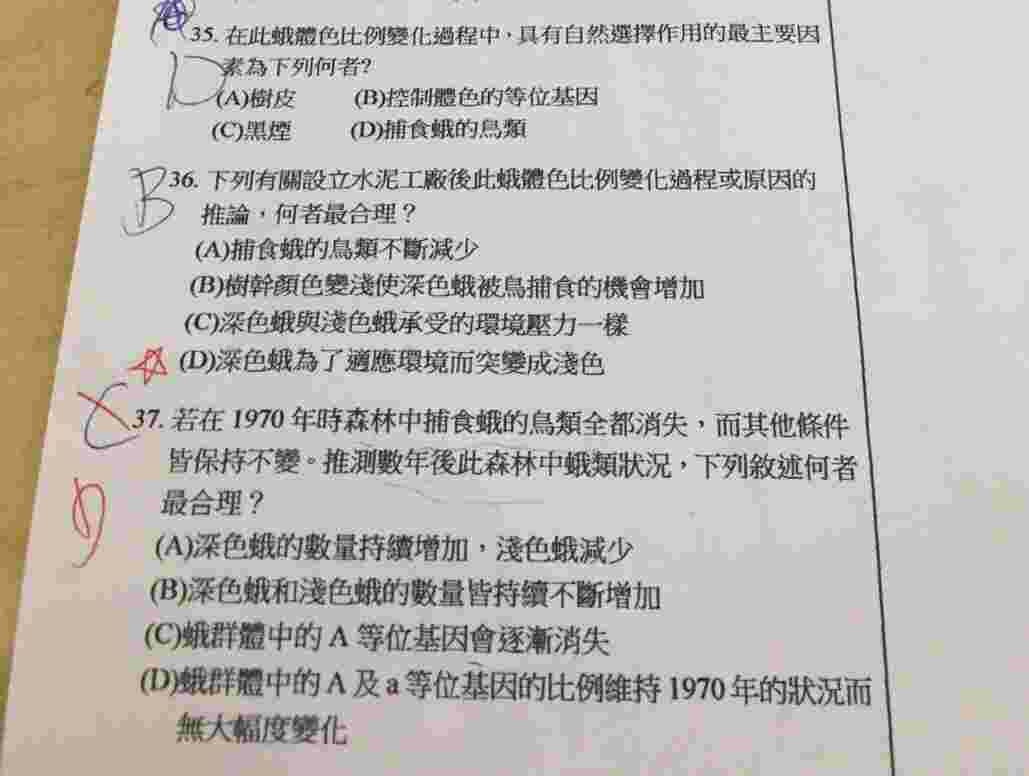 35. 在此蛾體色比例變化過程中，具有自然選擇作用的最主要因
素為下列何者?
D
(A)樹皮 (B)控制體色的等位基因
(C)黑煙 (D)捕食蛾的鳥類
B
36. 下列有關設立水泥工廠後此蛾體色比例變化過程或原因的
推論，何者最合理？
(A)捕食蛾的鳥類不斷減少
(B)樹幹顏色變淺使深色蛾被鳥捕食的機會增加
(C)深色蛾與淺色蛾承受的環境壓力一樣
(D)深色蛾為了適應環境而突變成淺色
C
37. 若在 1970 年時森林中捕食蛾的鳥類全都消失，而其他條件
皆保持不變。推測數年後此森林中蛾類狀況，下列敘述何者
最合理？
D
(A)深色蛾的數量持續增加，淺色蛾減少
(B)深色蛾和淺色蛾的數量皆持續不斷增加
(C)蛾群體中的 A 等位基因會逐漸消失
(D)蛾群體中的 A 及 a 等位基因的比例維持 1970 年的狀況而
無大幅度變化